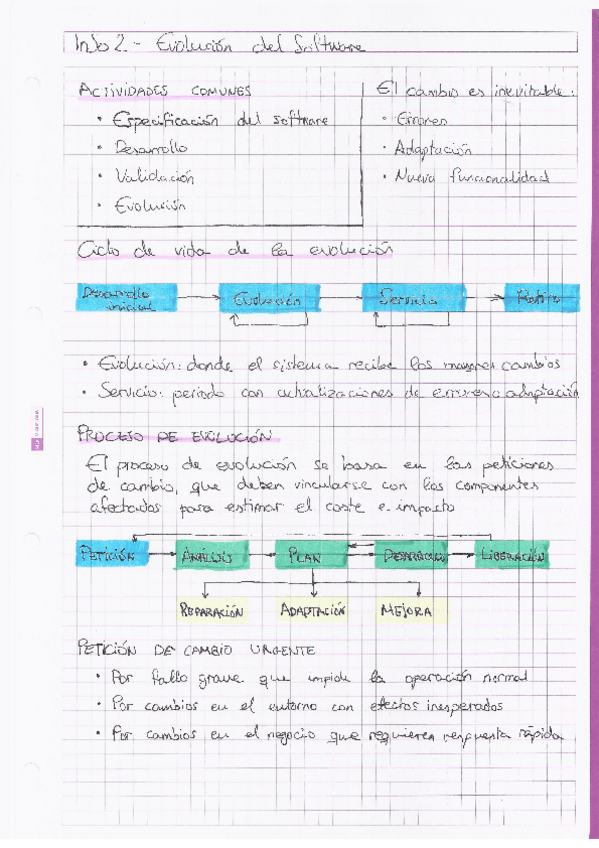 Info 2.- Evolución del Software
ACTIVIDADES COMUNES
• Especificación del software
• Desarrollo
• Validación
• Evolución
El cambio es inevitable:
• Errores
• Adaptación
• Nueva funcionalidad
Ciclo de vida de la evolución
Desarrollo inicial
Evolución
Servicio
Retiro
• Evolución: donde el sistema recibe los mayores cambios
• Servicio: periodo con actualizaciones de errores o adaptación
PROCESO DE EVOLUCIÓN
El proceso de evolución se basa en las peticiones
de cambio, que deben vincularse con los componentes
afectados para estimar el coste e impacto
PETICIÓN
ANÁLISIS
PLAN
LIBERACIÓN
REPARACIÓN
ADAPTACIÓN
MEJORA
PETICIÓN DE CAMBIO URGENTE
• Por fallo grave que impide la operación normal
• Por cambios en el entorno con efectos inesperados
• Por cambios en el negocio que requieren respuesta rápida